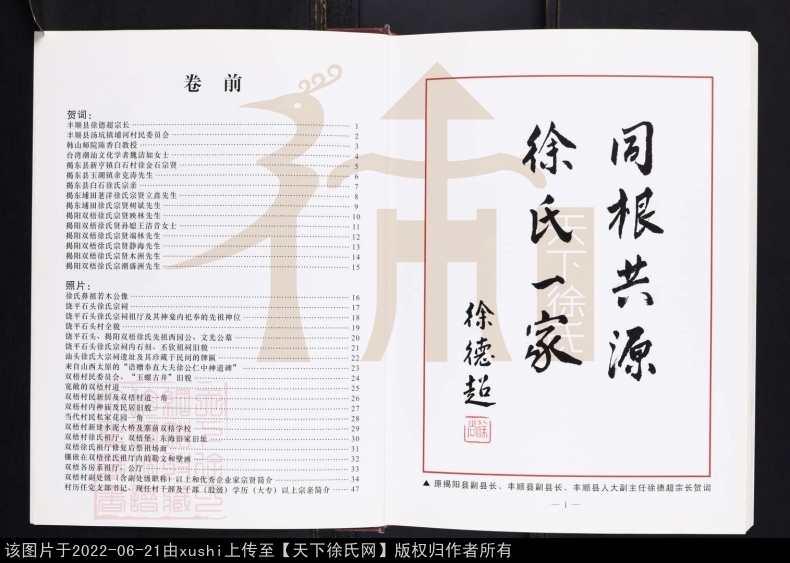 卷 前
贺词：
丰顺县徐德超宗长 1
丰顺县汤坑镇埔河村民委员会 2
韩山师院陈香白教授 3
台湾潮汕文化学者魏洁如女士 4
揭东县新亨镇白石村徐金石宗贤 5
揭东县玉湖镇余克涛先生 6
揭东县白石徐氏宗亲 7
揭东埔田荖洋徐氏宗贤立鑫先生 8
揭东埔田徐氏宗贤树斌先生 9
揭阳双梧徐氏宗贤映林先生 10
揭阳双梧徐氏贤孙媳王洁音女士 11
揭阳双梧徐氏宗贤端林先生 12
揭阳双梧徐氏宗贤静海先生 13
揭阳双梧徐氏宗贤木洲先生 14
揭阳双梧徐氏宗潮盛洲先生 15
照片：
徐氏鼻祖若木公像 16
饶平石头徐氏宗祠 17
饶平石头徐氏宗祠祖厅及其神龛内祀奉的先祖神位 18
饶平石头村全貌 19
饶平石头、揭阳双梧徐氏先祖西园公、文光公墓 20
饶平石头徐氏宗祠内石刻、丕钦祖祠旧貌 21
汕头徐氏大宗祠遗址及其珍藏于民间的牌匾 22
来自山西太原的“诰赠奉直大夫徐公仁中神道碑” 23
双梧村民委员会、“玉螺古井”旧貌 24
宽敞的双梧村道 25
双梧村民新居及双梧村道一角 26
双梧村内神庙及民居旧貌 27
当代村民私家花园一角 28
双梧村新建水泥大桥及寨前双梧学校 29
双梧村徐氏祖厅、双梧堡、东海旧家旧址 30
双梧徐氏祖厅修复后祭祖场面 31
镶嵌在双梧徐氏祖厅内的勒文和壁画 32
双梧各房系祖厅、公厅 33
双梧村副处级（含副处级职称）以上和优秀企业家宗贤简介 34
村历任党支部书记、现任村干部及干部（股级）学历（大专）以上宗亲简介 47
同根共源
徐氏一家
徐德超
▲ 原揭阳县副县长、丰顺县副县长、丰顺县人大副主任徐德超宗长贺词
— 1 —
天下徐氏
该图片于2022-06-21由xushi上传至【天下徐氏网】版权归作者所有